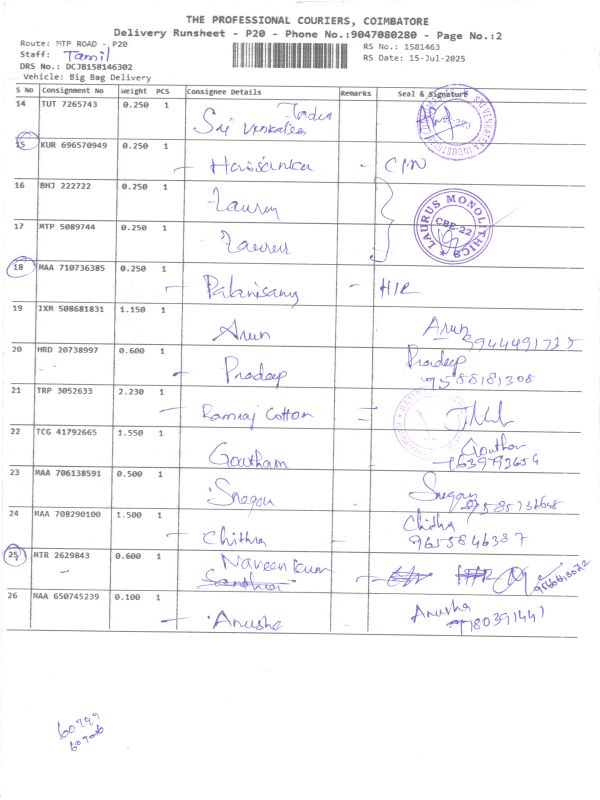 THE PROFESSIONAL COURIERS, COIMBATORE
Delivery Runsheet - P20 - Phone No.:9047080280 - Page No.:2
Route: MTP ROAD - P20
RS No.: 1581463
Staff: Tamil
RS Date: 15-Jul-2025
DRS No.: DCJB158146302
Vehicle: Big Bag Delivery
S No Consignment No Weight PCS Consignee Details Remarks Seal & Signature
14 TUT 7265743 0.250 1 Sri Venkatesa
15 KUR 696570949 0.250 1
16 BHJ 222722 0.250 1
LAURUS MONOLITHICS CBE-22
17 MTP 5089744 0.250 1
18 MAA 710736385 0.250 1 Palanisamy - H/R
19 IXM 508681831 1.150 1 Arun Arun
20 HRD 20738997 0.600 1 Pradeep Pradeep
9588181308
21 TRP 3052633 2.230 1 Ramraj Cotton
22 TCG 41792665 1.550 1 Goutham Goutham
23 MAA 706138591 0.500 1
24 MAA 708290100 1.500 1 Chithra Chitha
9655846387
25 MTR 2629843 0.600 1 Naveen kum
26 MAA 650745239 0.100 1 Anusha Anusha